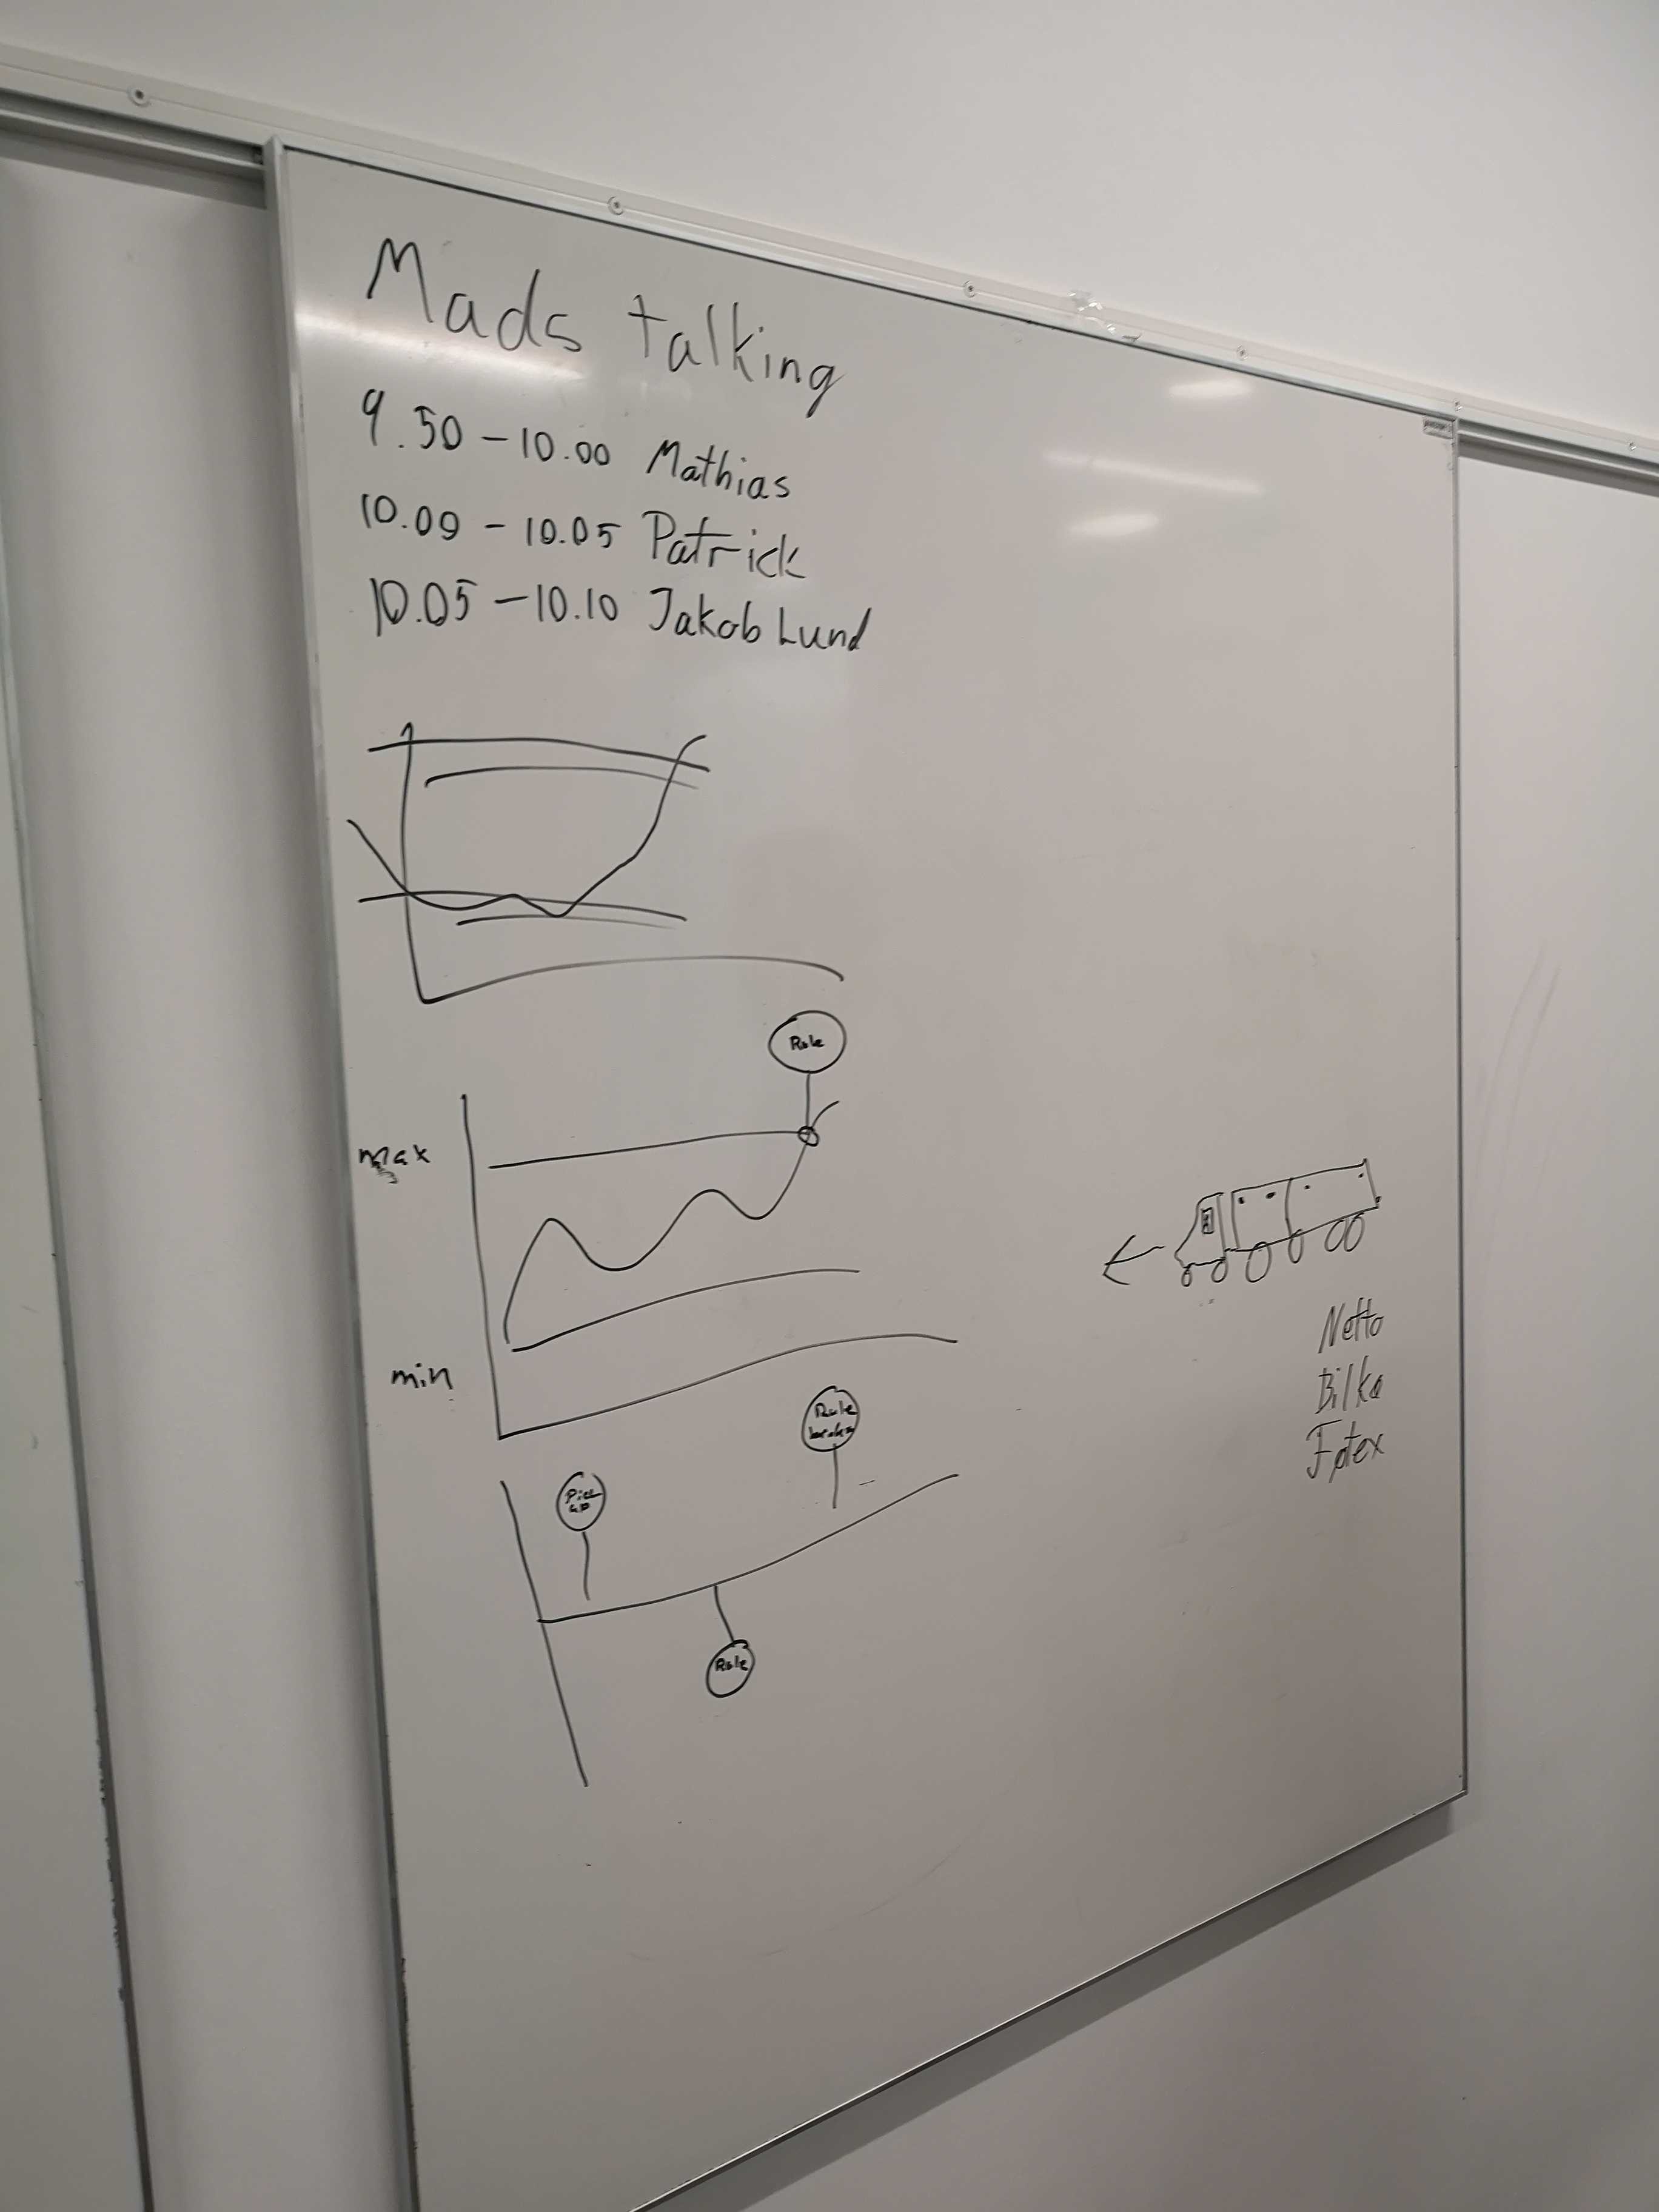 Mads talking
9.50 - 10.00 Mathias
10.00 - 10.05 Patrick
10.05 - 10.10 Jakob Lund
Rule
max
min
Rule
Pick
up
Rule
Netto
Bilka
Føtex